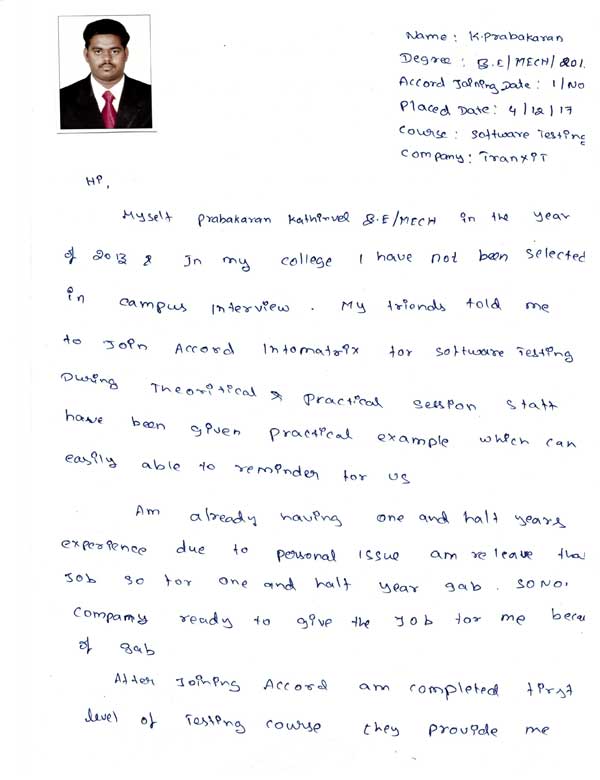 Name : K.Prabakaran
Degree : B.E/MECH/201
Accord Joining Date : 1/No
Placed Date : 4/12/17
Course : Software Testing
Company : TranxIT
Hi,
Myself Prabakaran Kathirvel B.E/MECH in the year
of 2013 & In my college I have not been selected
in campus Interview . My friends told me
to Join Accord Infomatrix for software Testing
During Theoritical & Practical Session Staff
have been given practical example which can
easily able to reminder for us
Am already having one and half years
experience due to personal issue am releave tha
Job so for one and half year gab . So No
Company ready to give the Job for me beca
of gab
After Joining Accord am completed first
level of Testing course they provide me